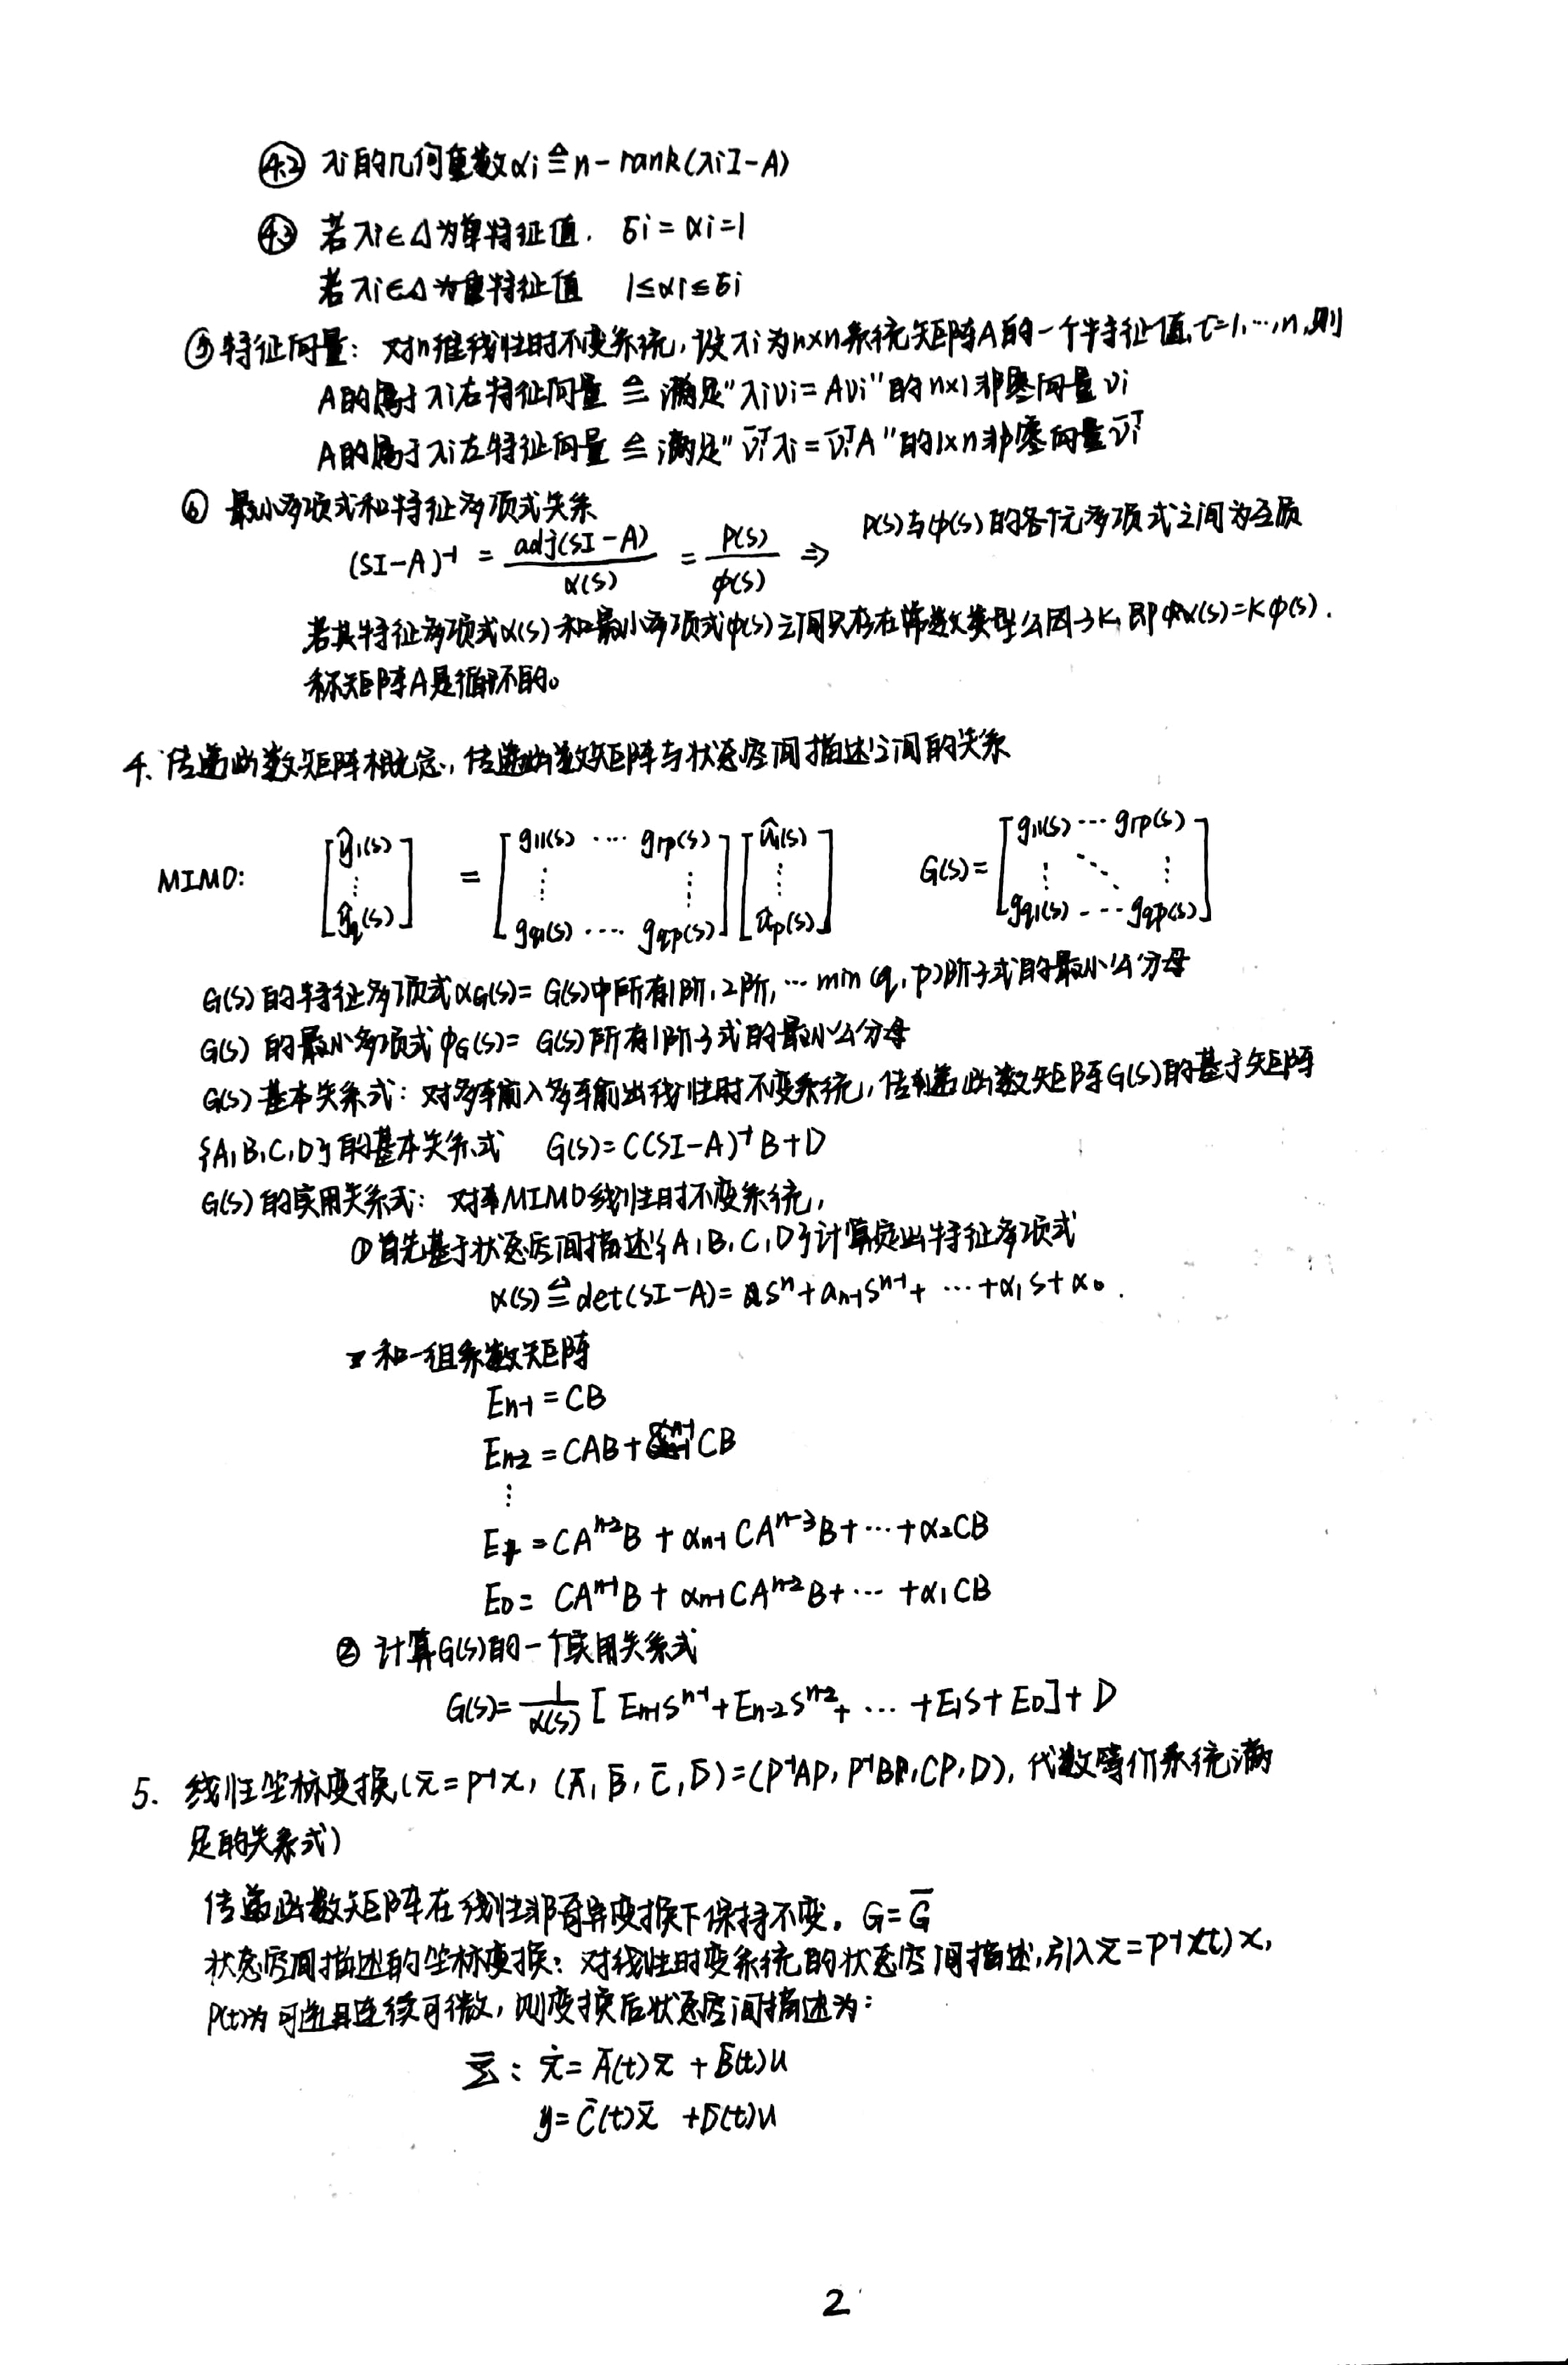 ④.2 λi的几何重数αi ≜ n - rank(λiI-A)
④.3 若λi∈Λ为单特征值. δi = αi = 1
若λi∈Λ为重特征值 1≤αi≤δi
⑤特征向量: 对n维线性时不变系统,设λi为n×n系统矩阵A的一个特征值,i=1,…,n,则
A的属于λi右特征向量 ≜ 满足"λiνi = Aνi"的n×1非零向量νi
A的属于λi左特征向量 ≜ 满足"ν̄iᵀλi = ν̄iᵀA"的1×n非零向量ν̄iᵀ
⑥ 最小多项式和特征多项式关系
(SI-A)⁻¹ = adj(SI-A)/α(s) = P(s)/φ(s) ⇒ P(s)与φ(s)的各个元多项式之间为互质
若其特征多项式α(s)和最小多项式φ(s)之间只存在常数类型公因子K,即α(s)=Kφ(s).
称矩阵A是循环的。
4. 传递函数矩阵概念,传递函数矩阵与状态空间描述之间的关系
MIMO: [ŷ1(s) ⋮ ŷq(s)] = [g11(s) ⋯ g1p(s) ⋮ ⋮ gq1(s) ⋯ gqp(s)] [û1(s) ⋮ ûp(s)] G(s)= [g11(s) ⋯ g1p(s) ⋮ ⋱ ⋮ gq1(s) ⋯ gqp(s)]
G(s)的特征多项式αG(s)= G(s)中所有1阶,2阶,⋯min(q,p)阶子式的最小公分母
G(s)的最小多项式φG(s)= G(s)所有1阶子式的最小公分母
G(s)基本关系式: 对多输入多输出线性时不变系统,传递函数矩阵G(s)的基于矩阵
{A,B,C,D}的基本关系式 G(s)=C(SI-A)⁻¹B+D
G(s)的实用关系式: 对MIMO线性时不变系统,
①首先基于状态空间描述{A,B,C,D}计算定出特征多项式
α(s)≜det(SI-A)= sⁿ+aₙ₋₁sⁿ⁻¹+ ⋯+α₁s+α₀.
和一组系数矩阵
Eₙ₋₁=CB
Eₙ₋₂=CAB+αₙ₋₁CB
⋮
E₁=CAⁿ⁻²B + αₙ₋₁CAⁿ⁻³B+⋯+α₂CB
E₀= CAⁿ⁻¹B + αₙ₋₁CAⁿ⁻²B+⋯ +α₁CB
② 计算G(s)的一个实用关系式
G(s)= 1/α(s) [Eₙ₋₁sⁿ⁻¹+Eₙ₋₂sⁿ⁻²+ ⋯ +E₁s+E₀]+D
5. 线性坐标变换(x̄=P⁻¹x, (Ā,B̄,C̄,D̄)=(P⁻¹AP, P⁻¹B,CP,D),代数等价系统满
足的关系式)
传递函数矩阵在线性非奇异变换下保持不变。G=Ḡ
状态空间描述的坐标变换: 对线性时变系统的状态空间描述,引入x̄=P⁻¹(t)x,
P(t)为可逆且连续可微,则变换后状态空间描述为:
Σ̄: ẋ̄= Ā(t)x̄ + B̄(t)u
y= C̄(t)x̄ +D̄(t)u
2